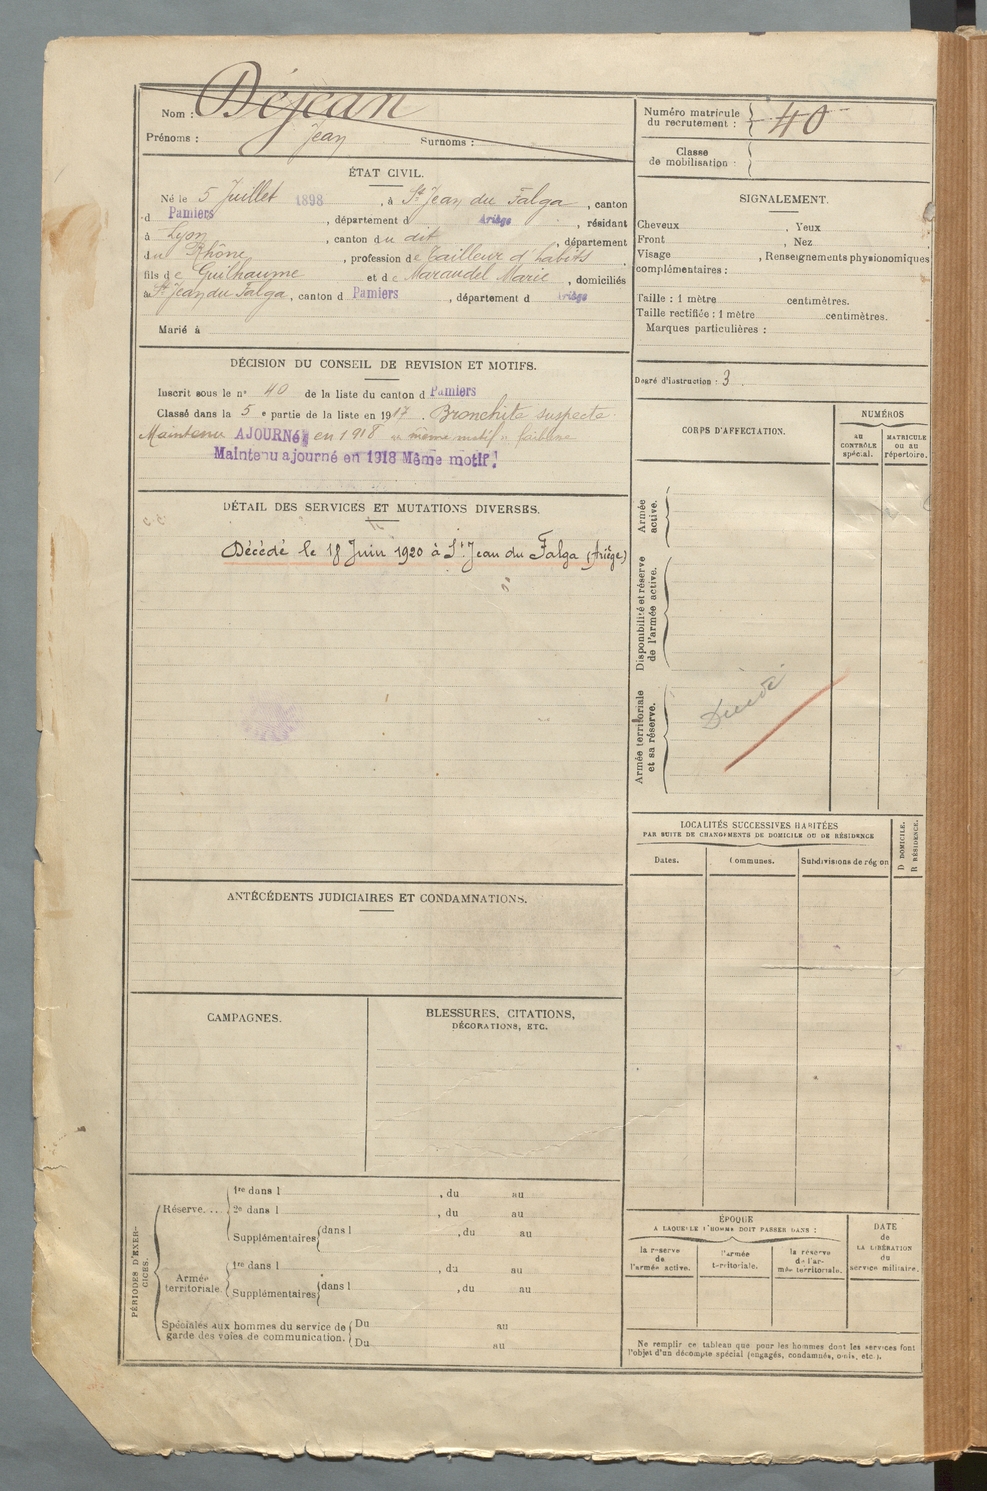 Nom : Déjean
Prénoms : Jean Surnoms :
Numéro matricule du recrutement : 40
Classe de mobilisation :
ÉTAT CIVIL.
Né le 5 Juillet 1898, à St Jean du Falga, canton
d Pamiers, département d Ariège, résidant
à Lyon, canton du dit, département
du Rhône, profession de Tailleur d'habits
fils de Guilhaume et de Maraudel Marie, domiciliés
à St Jean du Falga, canton d Pamiers, département d Ariège
Marié à
SIGNALEMENT.
Cheveux , Yeux
Front , Nez
Visage , Renseignements physionomiques
complémentaires :
Taille : 1 mètre centimètres.
Taille rectifiée : 1 mètre centimètres.
Marques particulières :
DÉCISION DU CONSEIL DE REVISION ET MOTIFS.
Inscrit sous le n° 40 de la liste du canton d Pamiers
Classé dans la 5 e partie de la liste en 1917. Bronchite suspecte
Maintenu AJOURNÉ en 1918 "même motif" faiblesse
Maintenu ajourné en 1918 Même motif!
Degré d'instruction : 3.
CORPS D'AFFECTATION.
NUMÉROS
AU CONTRÔLE spécial.
MATRICULE ou au répertoire.
Armée active.
Disponibilité et réserve de l'armée active.
Armée territoriale et sa réserve.
Décédé
DÉTAIL DES SERVICES ET MUTATIONS DIVERSES.
Décédé le 18 Juin 1920 à St Jean du Falga (Ariège)
LOCALITÉS SUCCESSIVES HABITÉES
PAR SUITE DE CHANGEMENTS DE DOMICILE OU DE RÉSIDENCE
Dates. Communes. Subdivisions de région
D DOMICILE.
R RÉSIDENCE.
ANTÉCÉDENTS JUDICIAIRES ET CONDAMNATIONS.
CAMPAGNES.
BLESSURES, CITATIONS,
DÉCORATIONS, ETC.
PÉRIODES D'EXERCICES.
Réserve... 1re dans l , du au
2e dans l , du au
Supplémentaires dans l , du au
Armée territoriale. 1re dans l , du au
Supplémentaires dans l , du au
Spéciales aux hommes du service de garde des voies de communication. Du au
Du au
ÉPOQUE
A LAQUELLE L'HOMME DOIT PASSER DANS :
la réserve de l'armée active.
l'armée territoriale.
la réserve de l'armée territoriale.
DATE de LA LIBÉRATION du service militaire.
Ne remplir ce tableau que pour les hommes dont les services font
l'objet d'un décompte spécial (engagés, condamnés, omis, etc.).